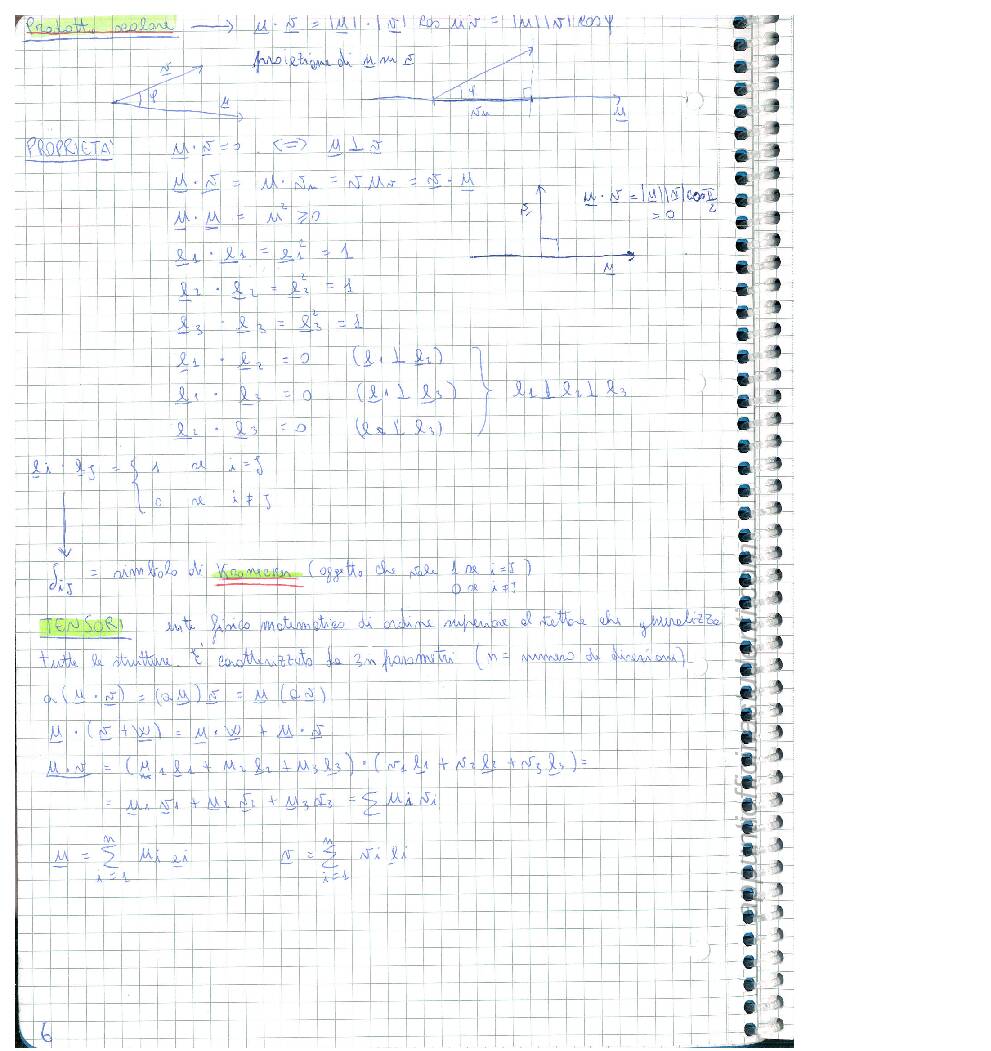 Prodotto scalare → u · v = |u| · |v| cos uv = |u||v| cos φ
proiezione di u su v
v
φ
u
φ
vu
u
PROPRIETÀ
u · v = 0 <=> u ⊥ v
u · v = u · vu = v uv = v · u
u · u = u² ≥ 0
v
u · v = |u||v| cos π/2
= 0
u
e1 · e1 = e1² = 1
e2 · e2 = e2² = 1
e3 · e3 = e3² = 1
e1 · e2 = 0 (e1 ⊥ e2)
e1 · e3 = 0 (e1 ⊥ e3) } e1 ⊥ e2 ⊥ e3
e2 · e3 = 0 (e2 ⊥ e3)
ei · ej = { 1 se i = j
0 se i ≠ j
δij = simbolo di Kronecker (oggetto che vale 1 se i = j)
0 se i ≠ j
TENSORI ente fisico matematico di ordine superiore al vettore che generalizza
tutte le strutture. È caratterizzato da 3n parametri (n = numero di dimensioni)
a (u · v) = (a u) v = u (a v)
u · (v + w) = u · w + u · v
u · v = (u1 e1 + u2 e2 + u3 e3) · (v1 e1 + v2 e2 + v3 e3) =
= u1 v1 + u2 v2 + u3 v3 = ∑ ui vi
u = ∑ i=1 n ui ei v = ∑ i=1 n vi ei
6